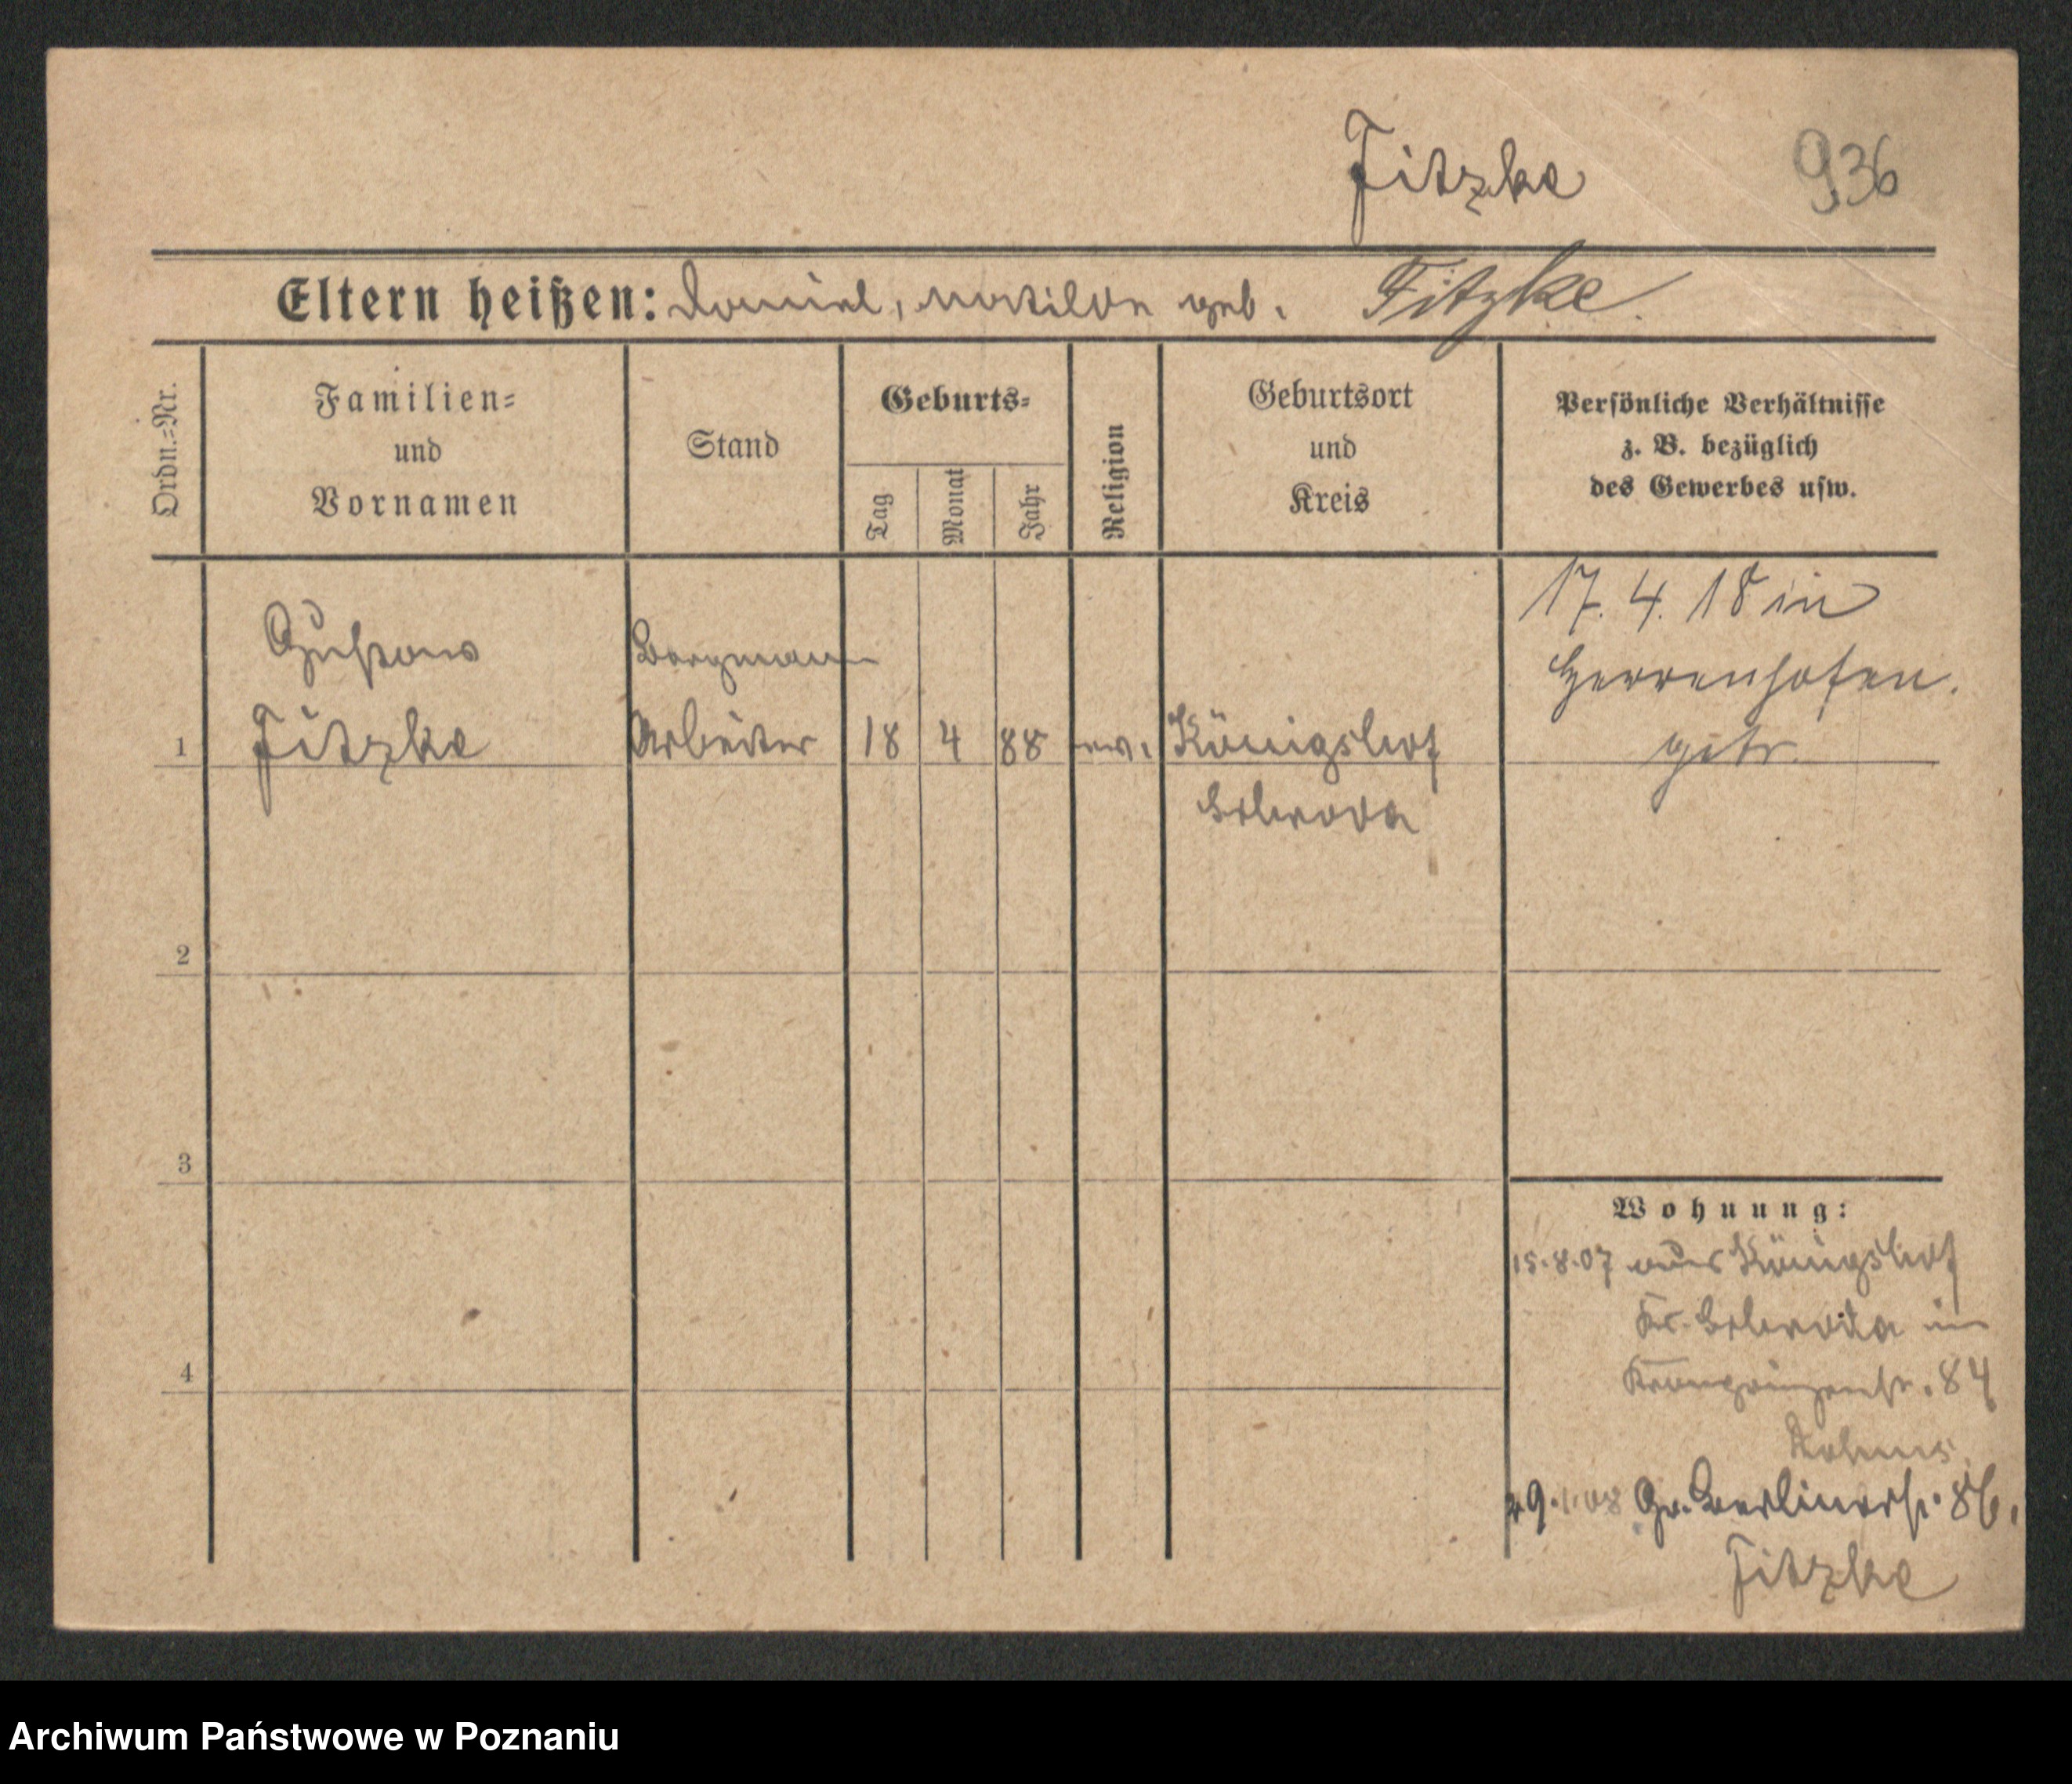 Fitzke
936
Eltern heißen: Daniel, Matilde geb. Fitzke.
Ordn.=Nr.
Familien=
und
Vornamen
Stand
Geburts=
Tag
Monat
Jahr
Religion
Geburtsort
und
Kreis
Persönliche Verhältnisse
z. B. bezüglich
des Gewerbes usw.
1
Gustav
Fitzke
Bergmann
Arbeiter
18
4
88
ev.
Königshof
Schroda
17. 4. 18 in
Herrenhofen.
getr.
2
3
4
Wohnung:
15.8.07 aus Königshof
Kr. Schroda in
Kronprinzenstr. 84
29.1.08 Gr. Berlinerstr. 86.
Fitzke
Archiwum Państwowe w Poznaniu